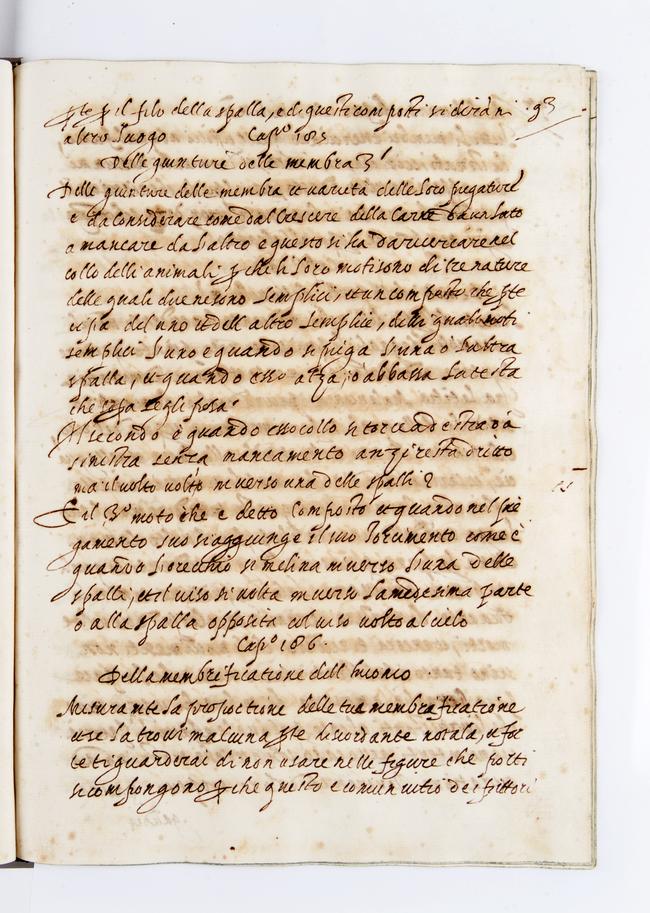 ꝑte ꝑ il filo della spalla, e di questi composti si dirà ni 93
altro luogo Cap.º 185
Delle giunture delle membra
Delle giunture delle membra et varietà delle loro piegature
e da considerare come dal crescere della Carne da un lato
a mancare da l'altro e questo si ha da ricercare nel
collo delli animali ꝑ che li loro moti sono di tre nature
delle quali due ne sono semplici, et un composto che ꝑte
cipa del uno et dell altro semplice, delli quali moti
semplici l'uno e quando si piega l'una o l'altra
spalla, et quando esso alza, o abbassa la testa
che sopa segli posa
Il secondo è quando esso collo si torce a destra o à
sinistra senza mancamento anzi resta dritto
ma il volto volto in verso una delle spalli
E il 3º moto che e detto composto et quando nel pie
gamento suo si aggiunge il suo Torcimento come è
quando l'orecchio s'inclina in verso l'una delle
spalli, et il uiso si volta in verso la medesima parte
o alla spalla opposita col uiso volto al cielo
Cap.º 186.
Della membrificatione dell huomo
Misura nte la proportione della tua membrificatione
et se la trovi in alcuna ꝑte discordante notala, et for
te ti guarderai di non usare nelle figure che ꝑ otti
si compongono ꝑ che questo e comun uitio de i pittori